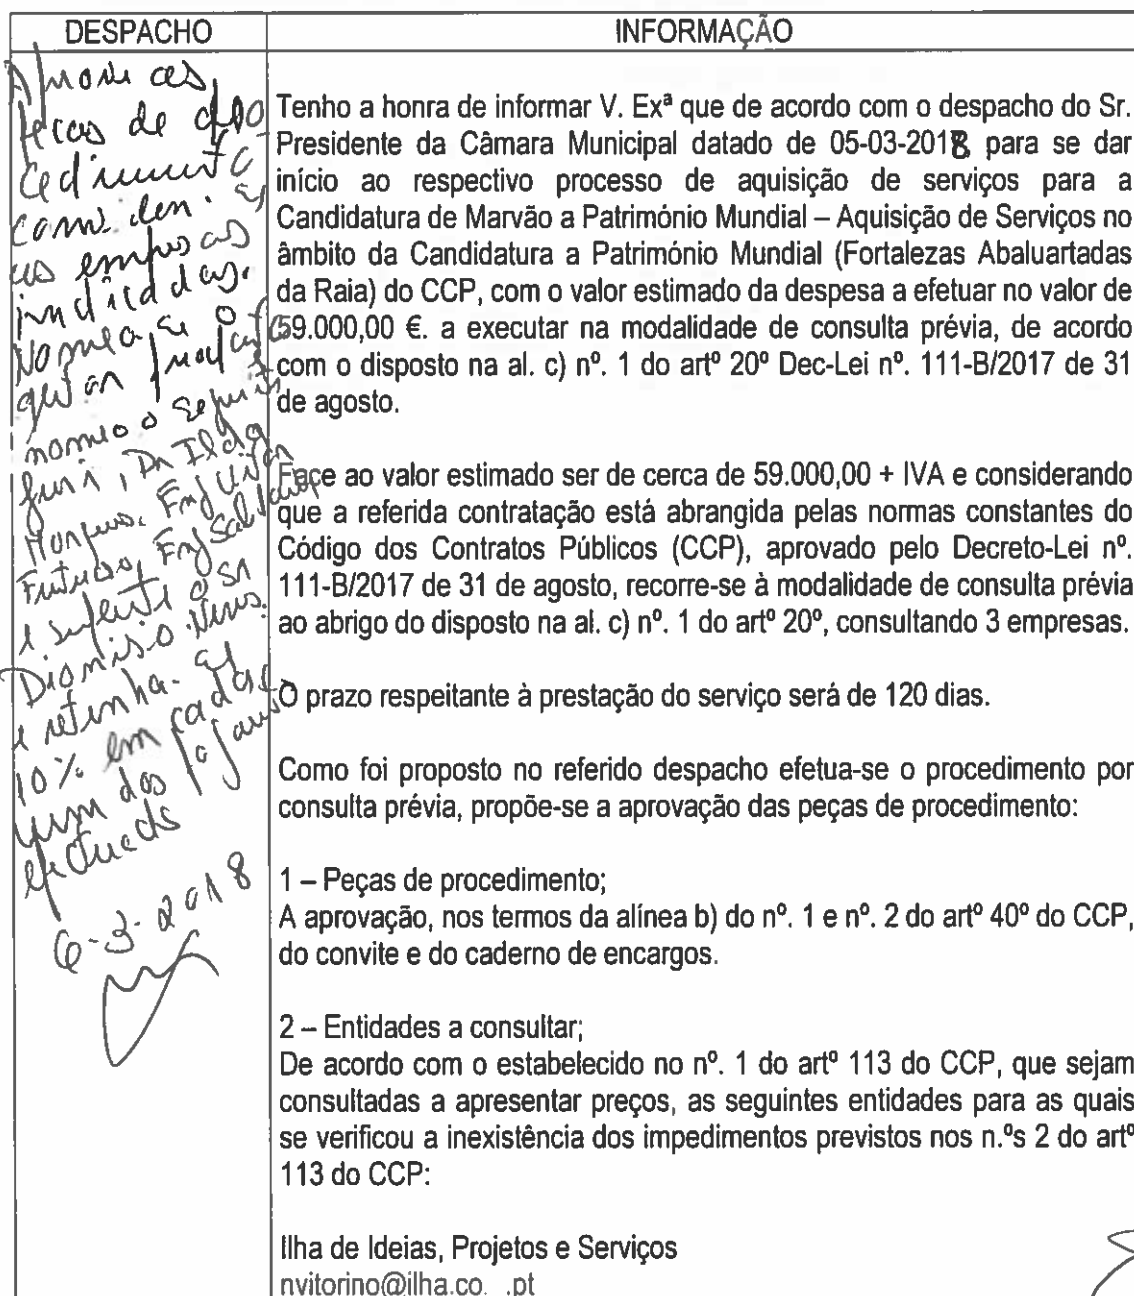 DESPACHO
INFORMAÇÃO
Aprovo as
peças de pro
cedimento
convidem-se
as empresas
indicadas.
Nomeia-se o
nomeio o seguin
juri, Dr Ilda
Marques, Eng
Eng
e suplente o Sr
Dionisio
e retenha-se
10% em cada
um dos
efectuads
6-3-2018
Tenho a honra de informar V. Exª que de acordo com o despacho do Sr.
Presidente da Câmara Municipal datado de 05-03-2018 para se dar
início ao respectivo processo de aquisição de serviços para a
Candidatura de Marvão a Património Mundial – Aquisição de Serviços no
âmbito da Candidatura a Património Mundial (Fortalezas Abaluartadas
da Raia) do CCP, com o valor estimado da despesa a efetuar no valor de
59.000,00 €. a executar na modalidade de consulta prévia, de acordo
com o disposto na al. c) nº. 1 do artº 20º Dec-Lei nº. 111-B/2017 de 31
de agosto.
Face ao valor estimado ser de cerca de 59.000,00 + IVA e considerando
que a referida contratação está abrangida pelas normas constantes do
Código dos Contratos Públicos (CCP), aprovado pelo Decreto-Lei nº.
111-B/2017 de 31 de agosto, recorre-se à modalidade de consulta prévia
ao abrigo do disposto na al. c) nº. 1 do artº 20º, consultando 3 empresas.
O prazo respeitante à prestação do serviço será de 120 dias.
Como foi proposto no referido despacho efetua-se o procedimento por
consulta prévia, propõe-se a aprovação das peças de procedimento:
1 – Peças de procedimento;
A aprovação, nos termos da alínea b) do nº. 1 e nº. 2 do artº 40º do CCP,
do convite e do caderno de encargos.
2 – Entidades a consultar;
De acordo com o estabelecido no nº. 1 do artº 113 do CCP, que sejam
consultadas a apresentar preços, as seguintes entidades para as quais
se verificou a inexistência dos impedimentos previstos nos n.ºs 2 do artº
113 do CCP:
Ilha de Ideias, Projetos e Serviços
nvitorino@ilha.co. .pt